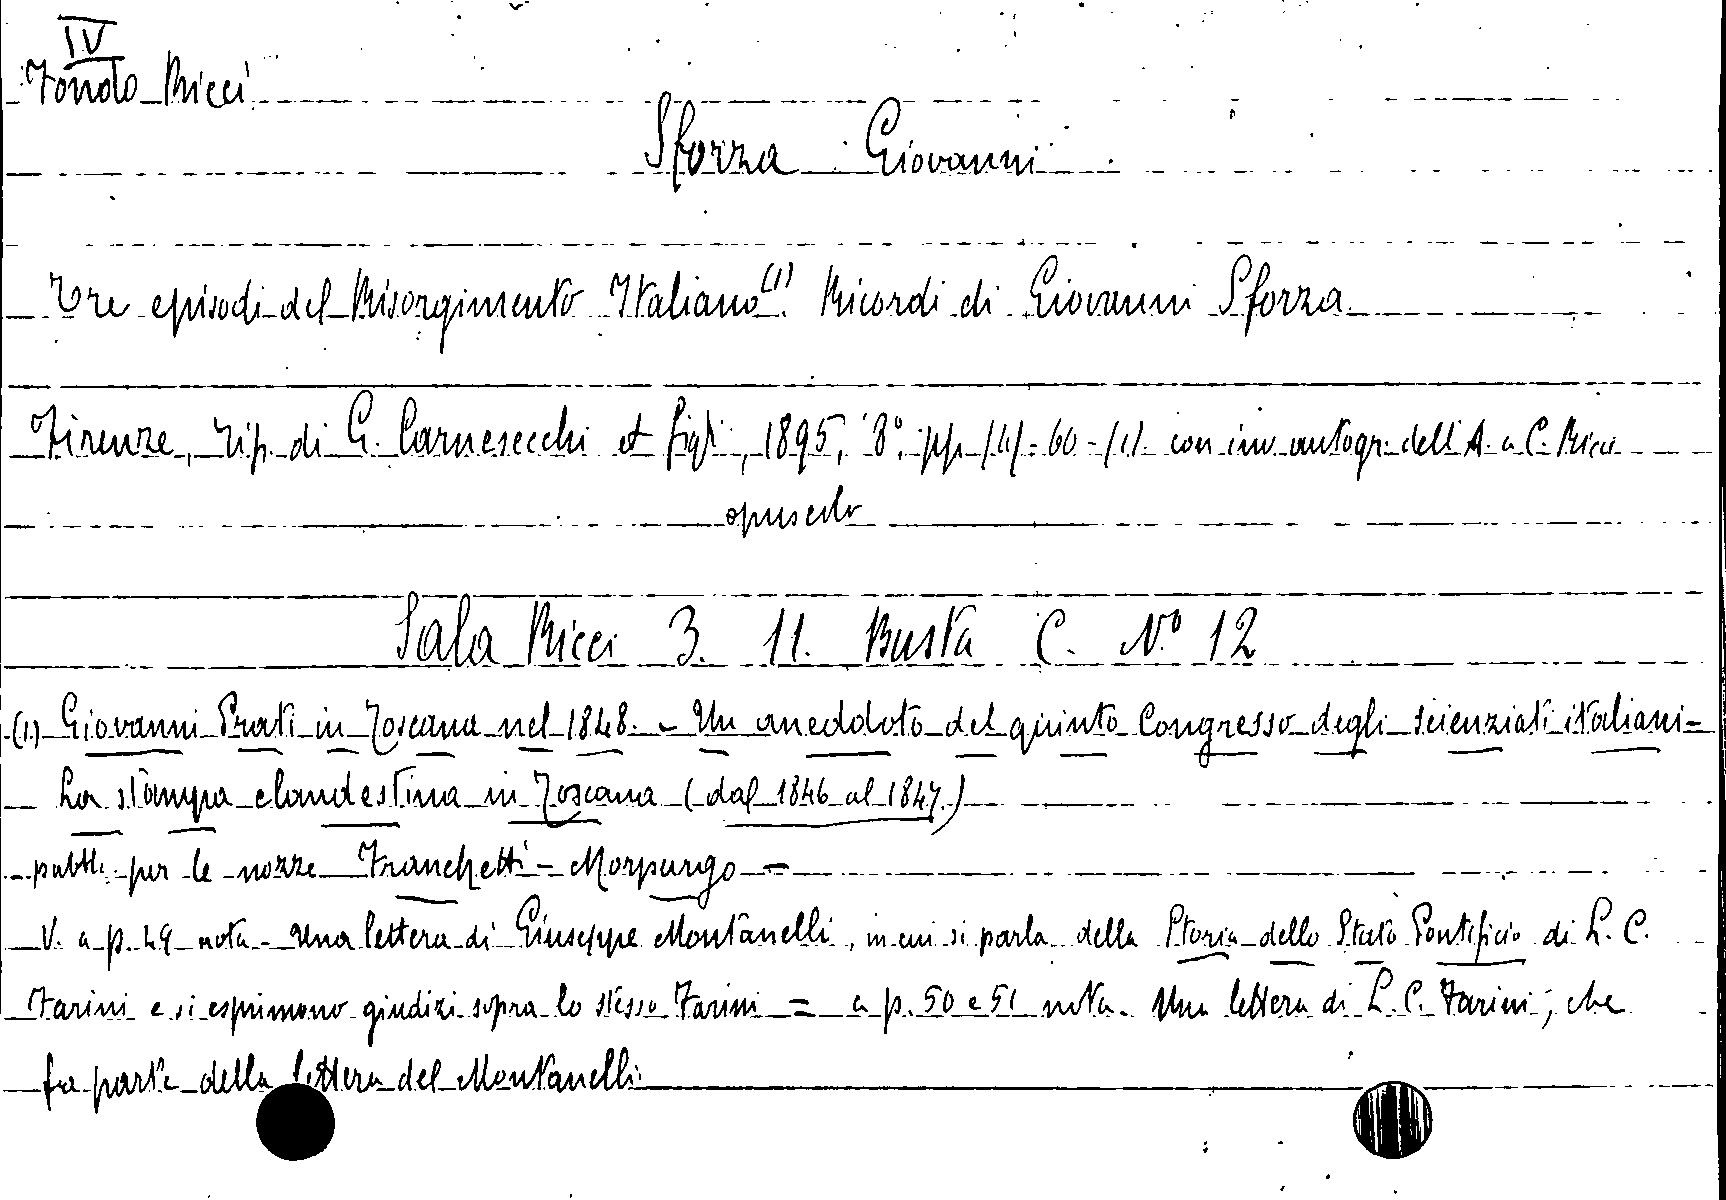 IV
Fondo Ricci
Sforza Giovanni
Tre episodi del Risorgimento Italiano (1). Ricordi di Giovanni Sforza
Firenze, Tip. di G. Carnesecchi et figli, 1895, 8°, pp. /4/-60-/1/. con inv. autogr. dell'A. a C. Ricci
opuscolo
Sala Ricci 3. 11. Busta C. N° 12
(1) Giovanni Prati in Toscana nel 1848. - Un aneddoto del quinto Congresso degli scienziati italiani -
La stampa clandestina in Toscana (dal 1846 al 1847.)
pubbl. per le nozze Franchetti - Morpurgo -
V. a p. 49 nota - Una lettera di Giuseppe Montanelli, in cui si parla della Storia dello Stato Pontificio di L. C.
Farini e si esprimono giudizi sopra lo stesso Farini = a p. 50 e 51 nota. Una lettera di L. C. Farini, che
fa parte della lettera del Montanelli